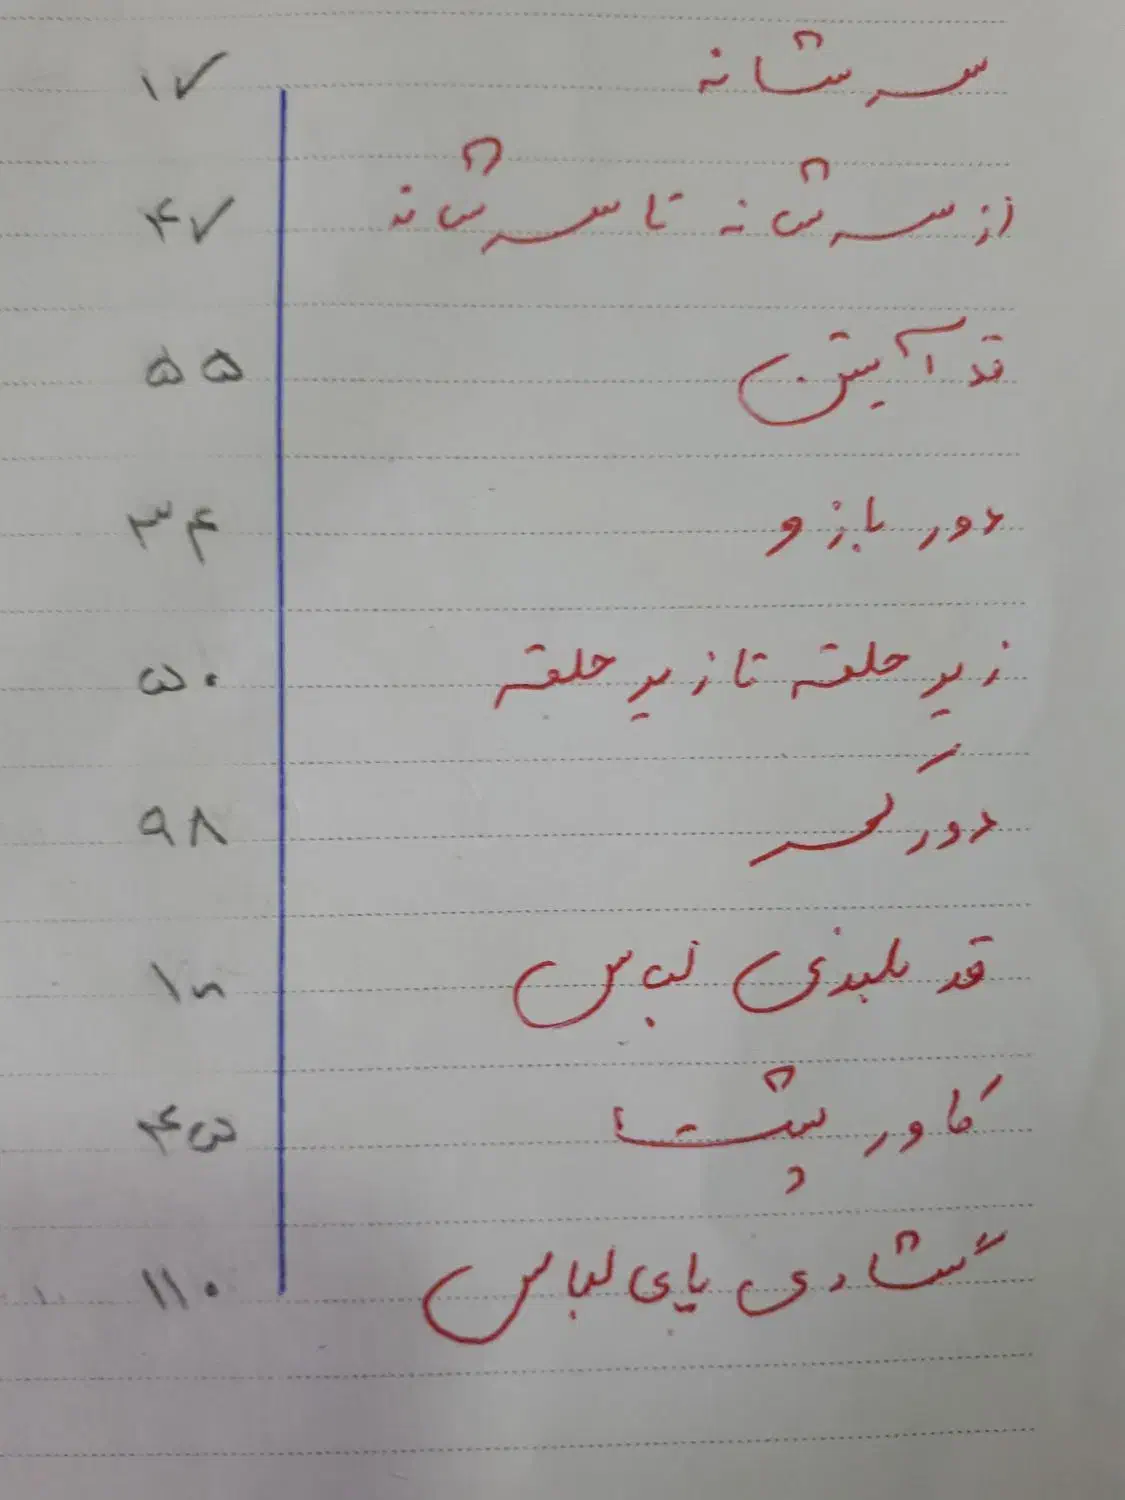 سر شانه ۱۷
از سر شانه تا سر شانه ۴۷
قد آستین ۵۵
دور بازو ۳۴
زیر حلقه تا زیر حلقه ۵۰
دور کمر ۹۸
قد بلندی لباس
کاور پشت ۴۵
گشادی پای لباس ۱۱۰